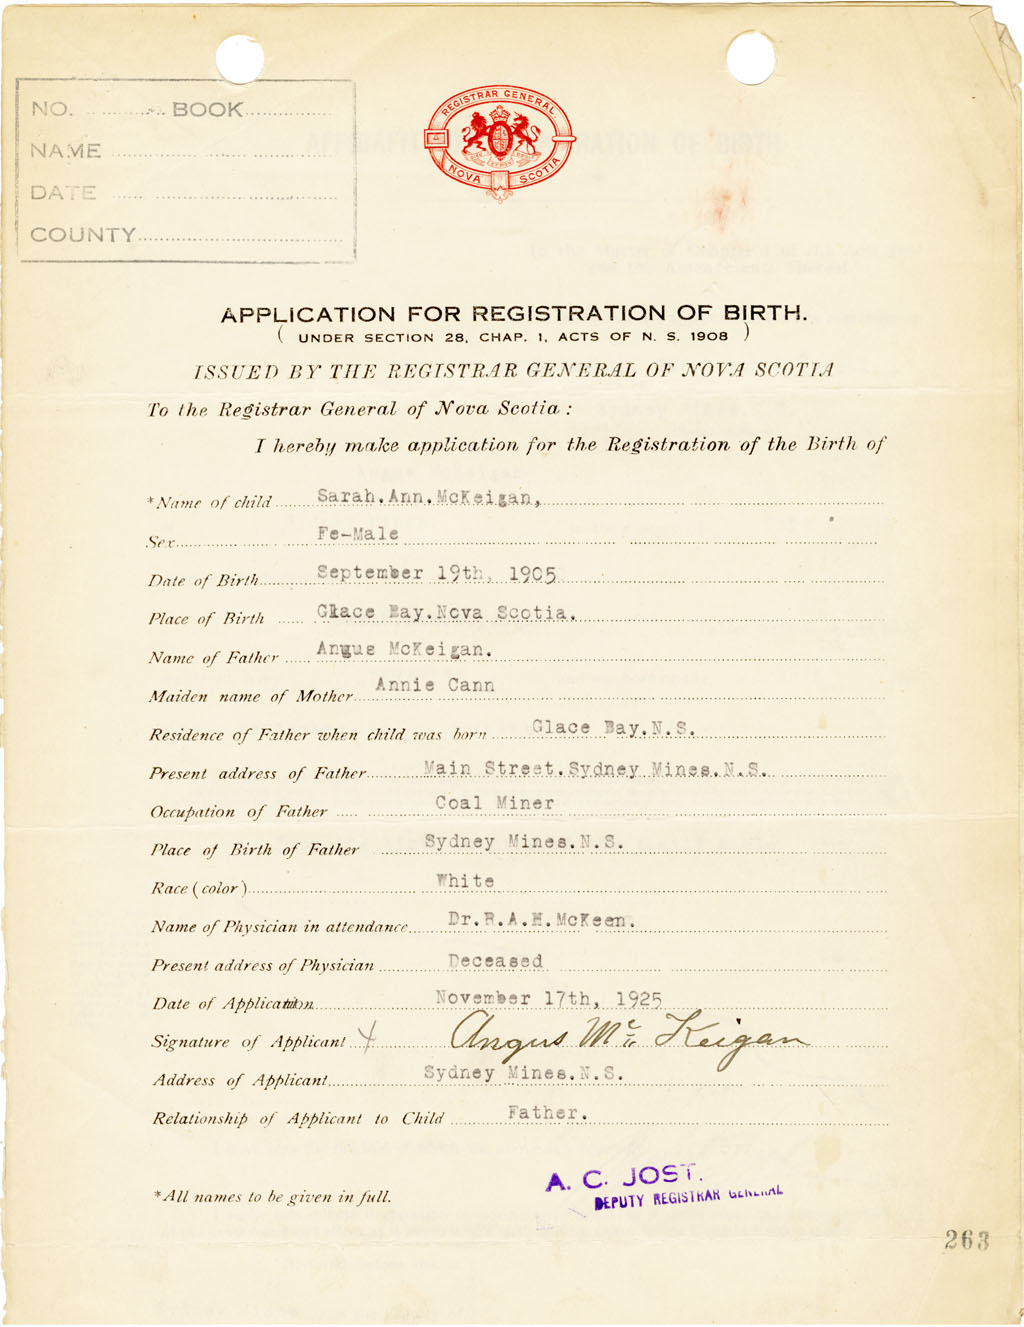 NO. BOOK
NAME
DATE
COUNTY
REGISTRAR GENERAL
NOVA SCOTIA
APPLICATION FOR REGISTRATION OF BIRTH.
( UNDER SECTION 28, CHAP. 1, ACTS OF N. S. 1908 )
ISSUED BY THE REGISTRAR GENERAL OF NOVA SCOTIA
To the Registrar General of Nova Scotia :
I hereby make application for the Registration of the Birth of
*Name of child Sarah.Ann.McKeigan,
Sex Fe-Male
Date of Birth September 19th, 1905
Place of Birth Glace Bay.Nova Scotia.
Name of Father Angus McKeigan.
Maiden name of Mother Annie Cann
Residence of Father when child was born Glace Bay.N.S.
Present address of Father Main Street.Sydney Mines.N.S.
Occupation of Father Coal Miner
Place of Birth of Father Sydney Mines.N.S.
Race (color) White
Name of Physician in attendance Dr.R.A.H.McKeen.
Present address of Physician Deceased
Date of Application November 17th, 1925
Signature of Applicant Angus Mc Keigan
Address of Applicant Sydney Mines.N.S.
Relationship of Applicant to Child Father.
*All names to be given in full.
A. C. JOST.
DEPUTY REGISTRAR GENERAL
263